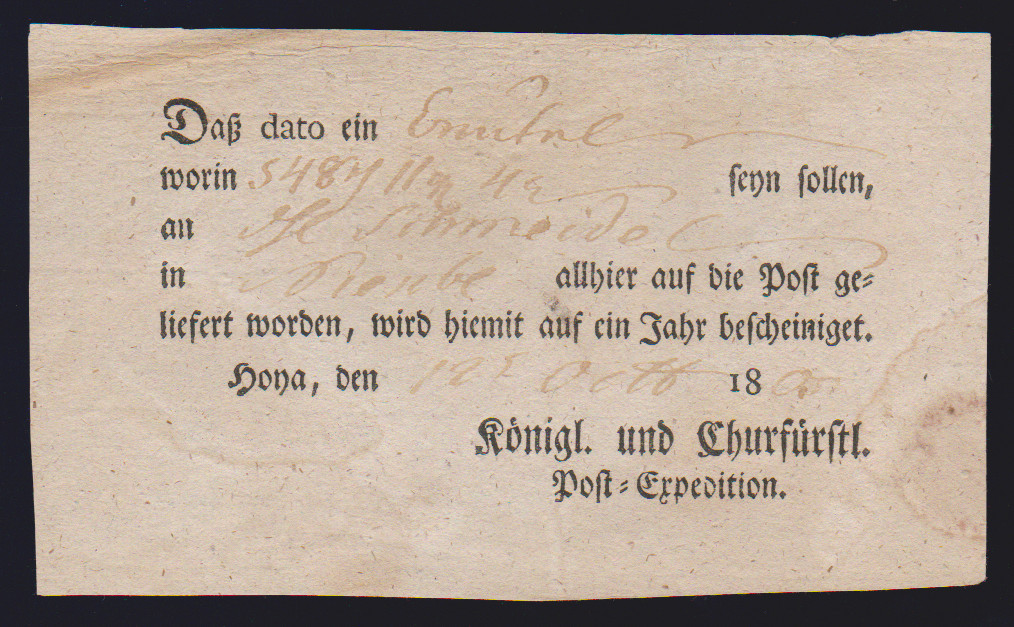 Daß dato ein
worin seyn sollen,
an Schneider
in allhier auf die Post ge=
liefert worden, wird hiemit auf ein Jahr bescheiniget.
Hoya, den 12t Octb 18
Königl. und Churfürstl.
Post=Expedition.